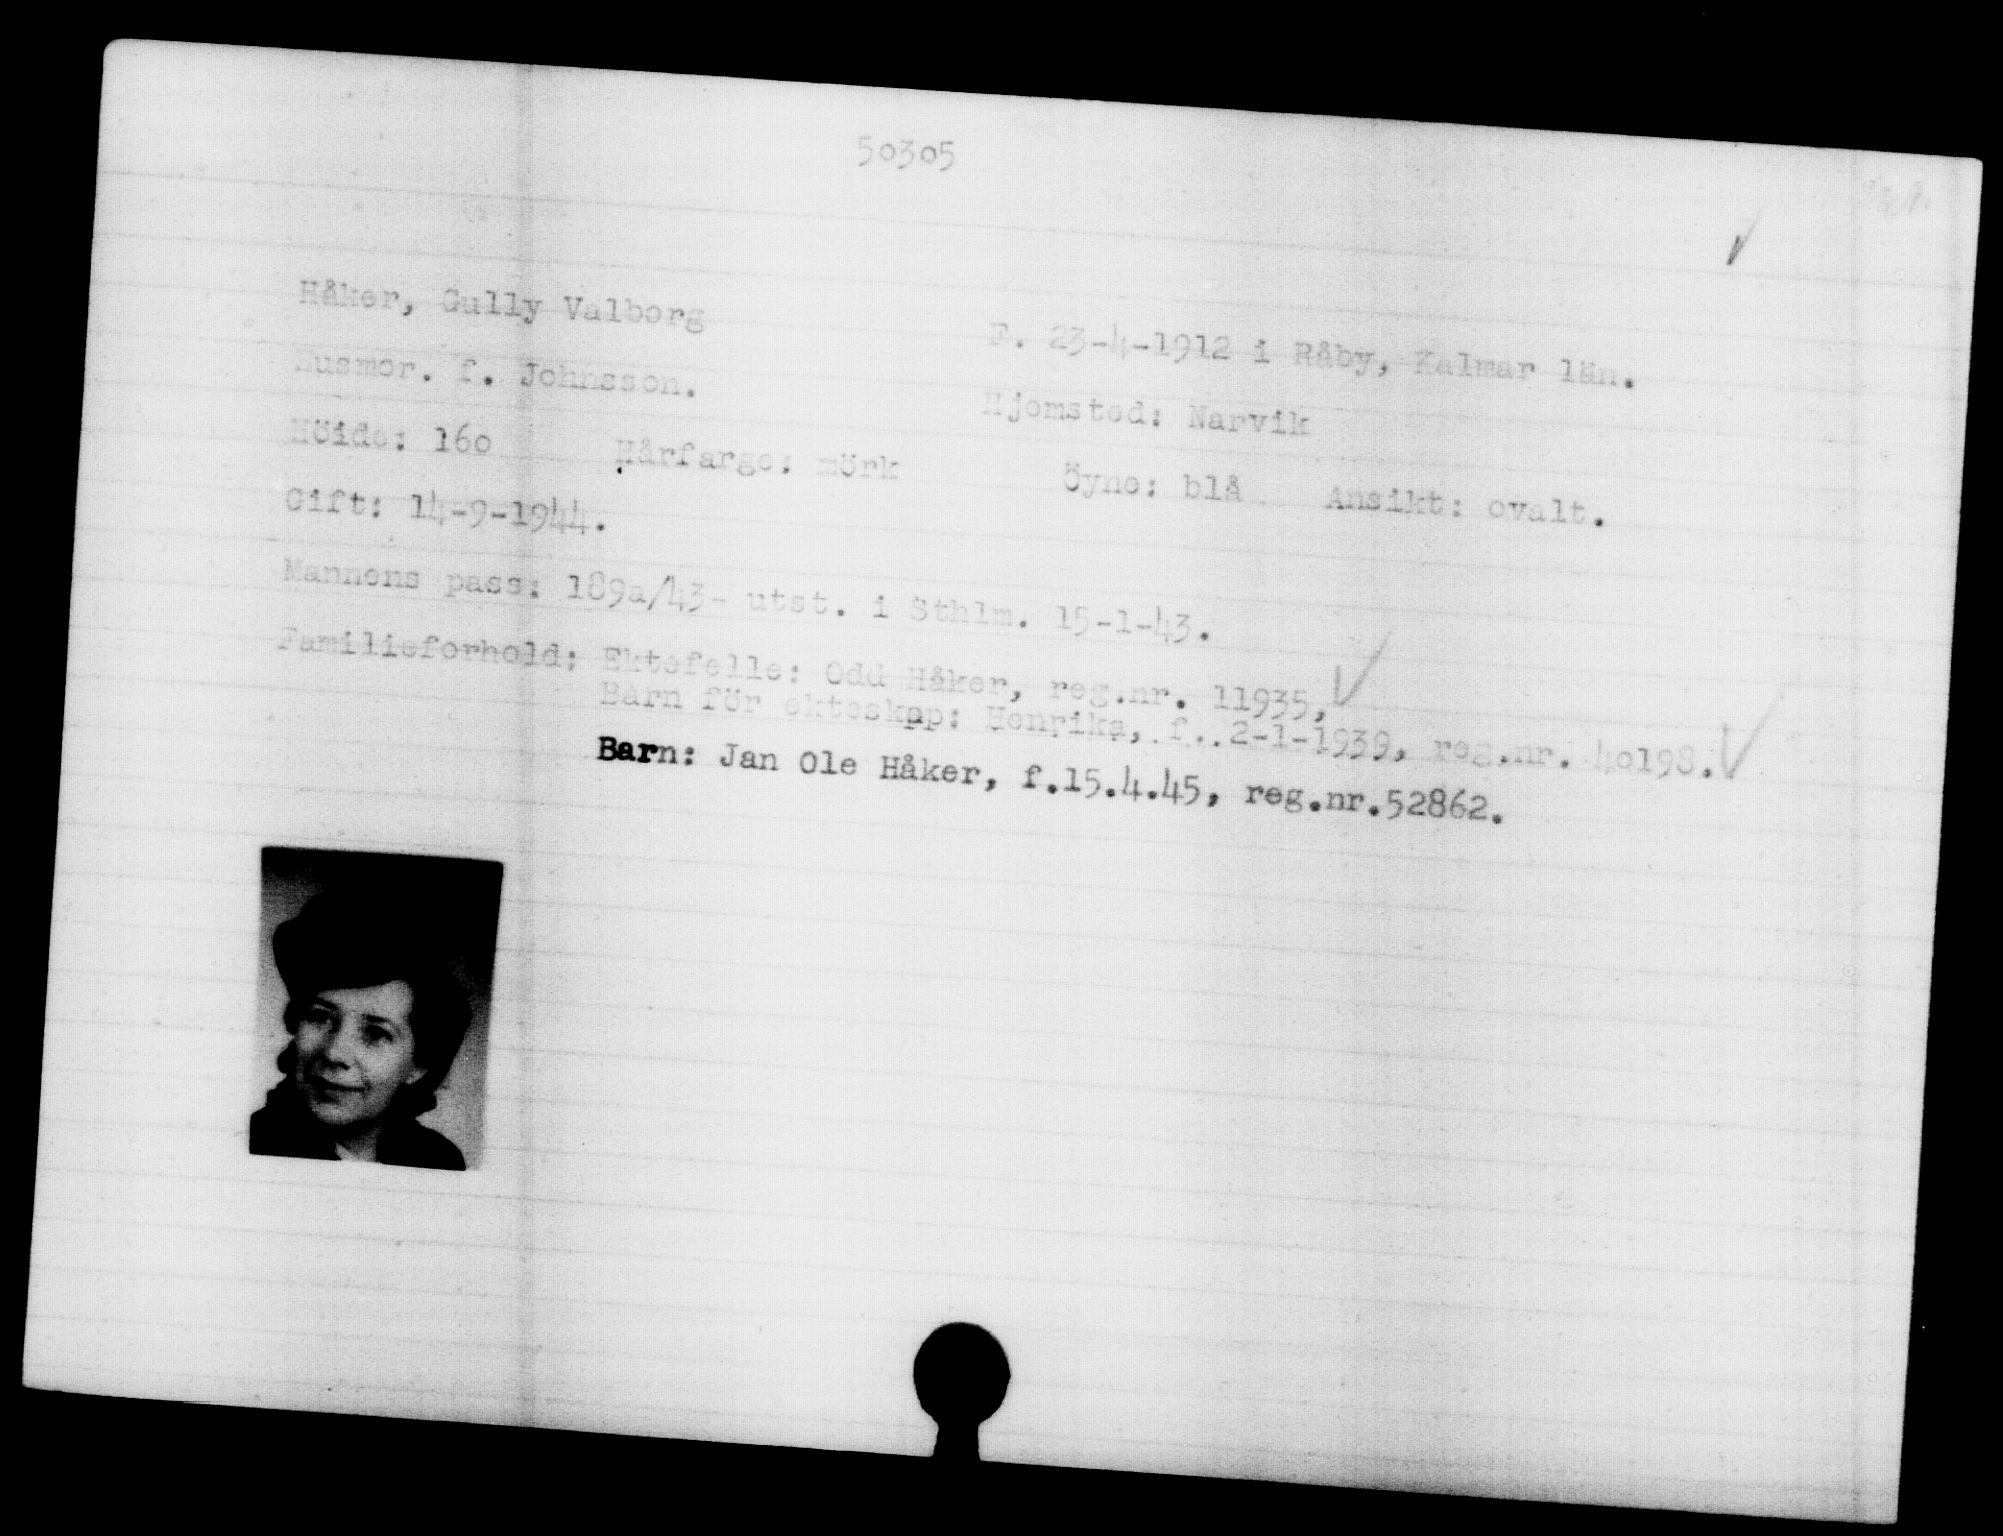 50305
Håker, Gully Valborg
F. 23-4-1912 i Råby, Kalmar län.
Husmor. f. Johnsson.
Hjemsted: Narvik
Höide: 160 Hårfarge: mörk Öyne: blå Ansikt: ovalt.
Gift: 14-9-1944.
Mannens pass: 189a/43- utst. i Sthlm. 15-1-43.
Familieforhold: Ektefelle: Odd Håker, reg.nr. 11935,
Barn för ekteskap: Henrika, f..2-1-1939, reg.nr. 40198.
Barn: Jan Ole Håker, f.15.4.45, reg.nr.52862.